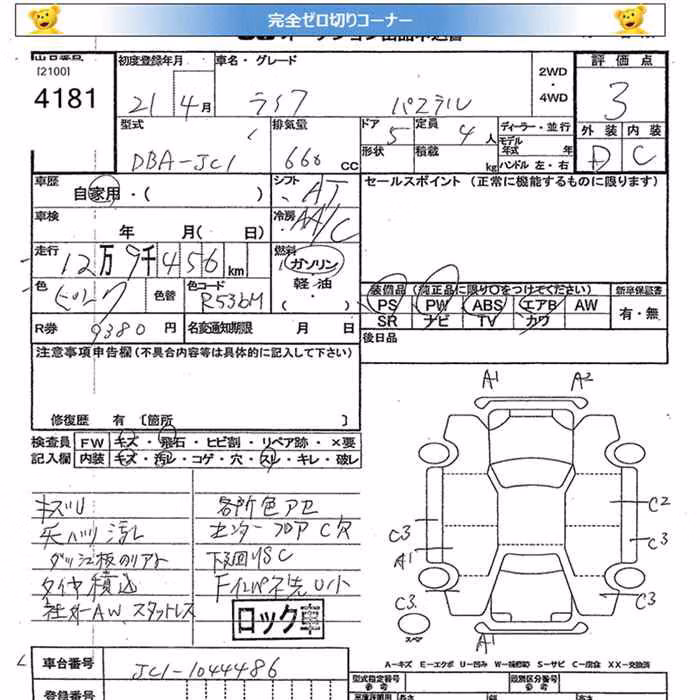 完全ゼロ切りコーナー
出品番号
[2100]
4181
初度登録年月
21 4月
車名・グレード
ライフ パステル
2WD
・
4WD
評価点
3
外装 内装
D C
型式
DBA-JC1
排気量
660 CC
ドア 5
形状
定員 4人
積載 kg
ディーラー・並行
モデル年式 年
ハンドル 左・右
車歴
自家用・( )
シフト AT
冷房 AA/C
セールスポイント(正常に機能するものに限ります)
車検
年 月( 日)
走行
12万9千456km
燃料
ガソリン
軽油
・( )
色
ピンク
色替
色コード
R536M
装備品(純正品に限り○をつけてください)
PS PW ABS エアB AW
SR ナビ TV カワ
新車保証書
有・無
R券 9380円
名変通知期限 月 日
後日品
注意事項申告欄(不具合内容等は具体的に記入して下さい)
修復歴 有〔箇所 〕
検査員 FW キズ・飛石・ヒビ割・リペア跡・×要
記入欄 内装 キズ・汚レ・コゲ・穴・スレ・キレ・破レ
キズU
天ハリ汚レ
ダッシュ板のリアト
タイヤ積込
社外AW スタッドレス
各所色アセ
センターフロアC穴
下廻りSC
FインパネU小
ロック車
A1 A2
C2
C3 C3
A1
C3 C3
スペア
A1
A-キズ E-エクボ U-凹み W-補修跡 S-サビ C-腐食 XX-交換済
車台番号
JC1-1044486
型式指定番号
参考
類別区分番号
参考
登録番号
長さ
幅
高さ